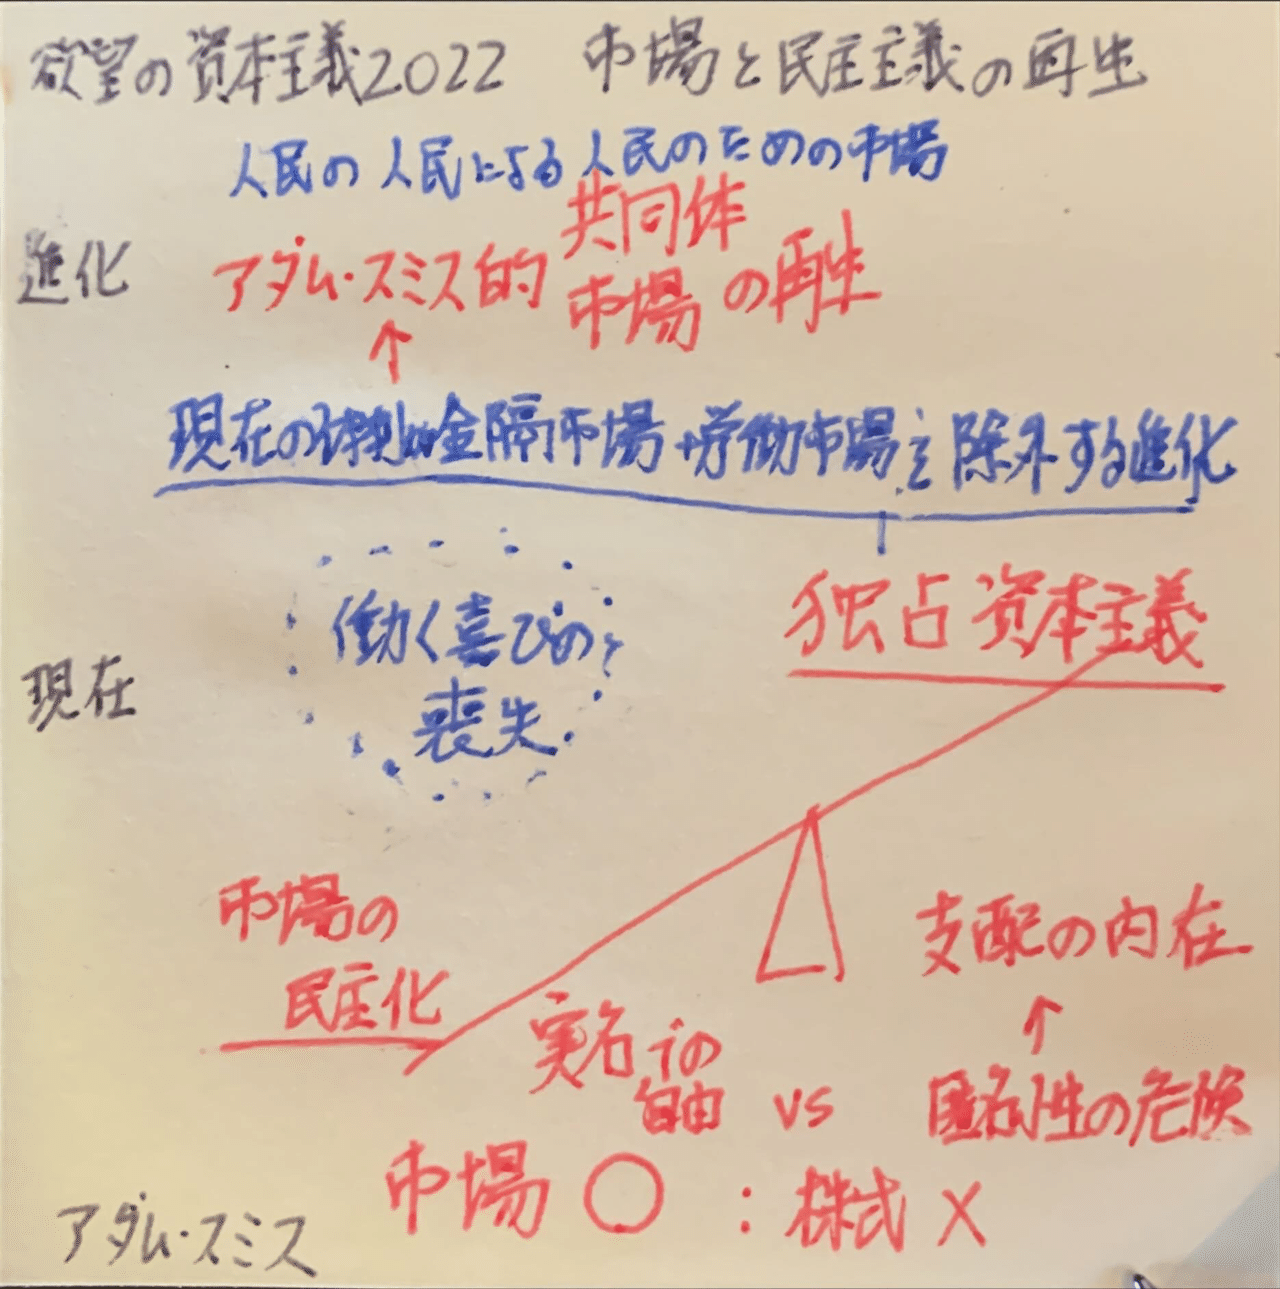 欲望の資本主義2022 市場と民主主義の再生
人民の人民による人民のための市場
進化
アダム・スミス的 共同体 市場 の再生
↑
現在の 金融市場 労働市場を除外する進化
働く喜びの
喪失
独占資本主義
現在
市場の
民主化
支配の内在
↑
実名での
自由 vs 匿名性の危険
市場 ○ : 株式 ×
アダム・スミス